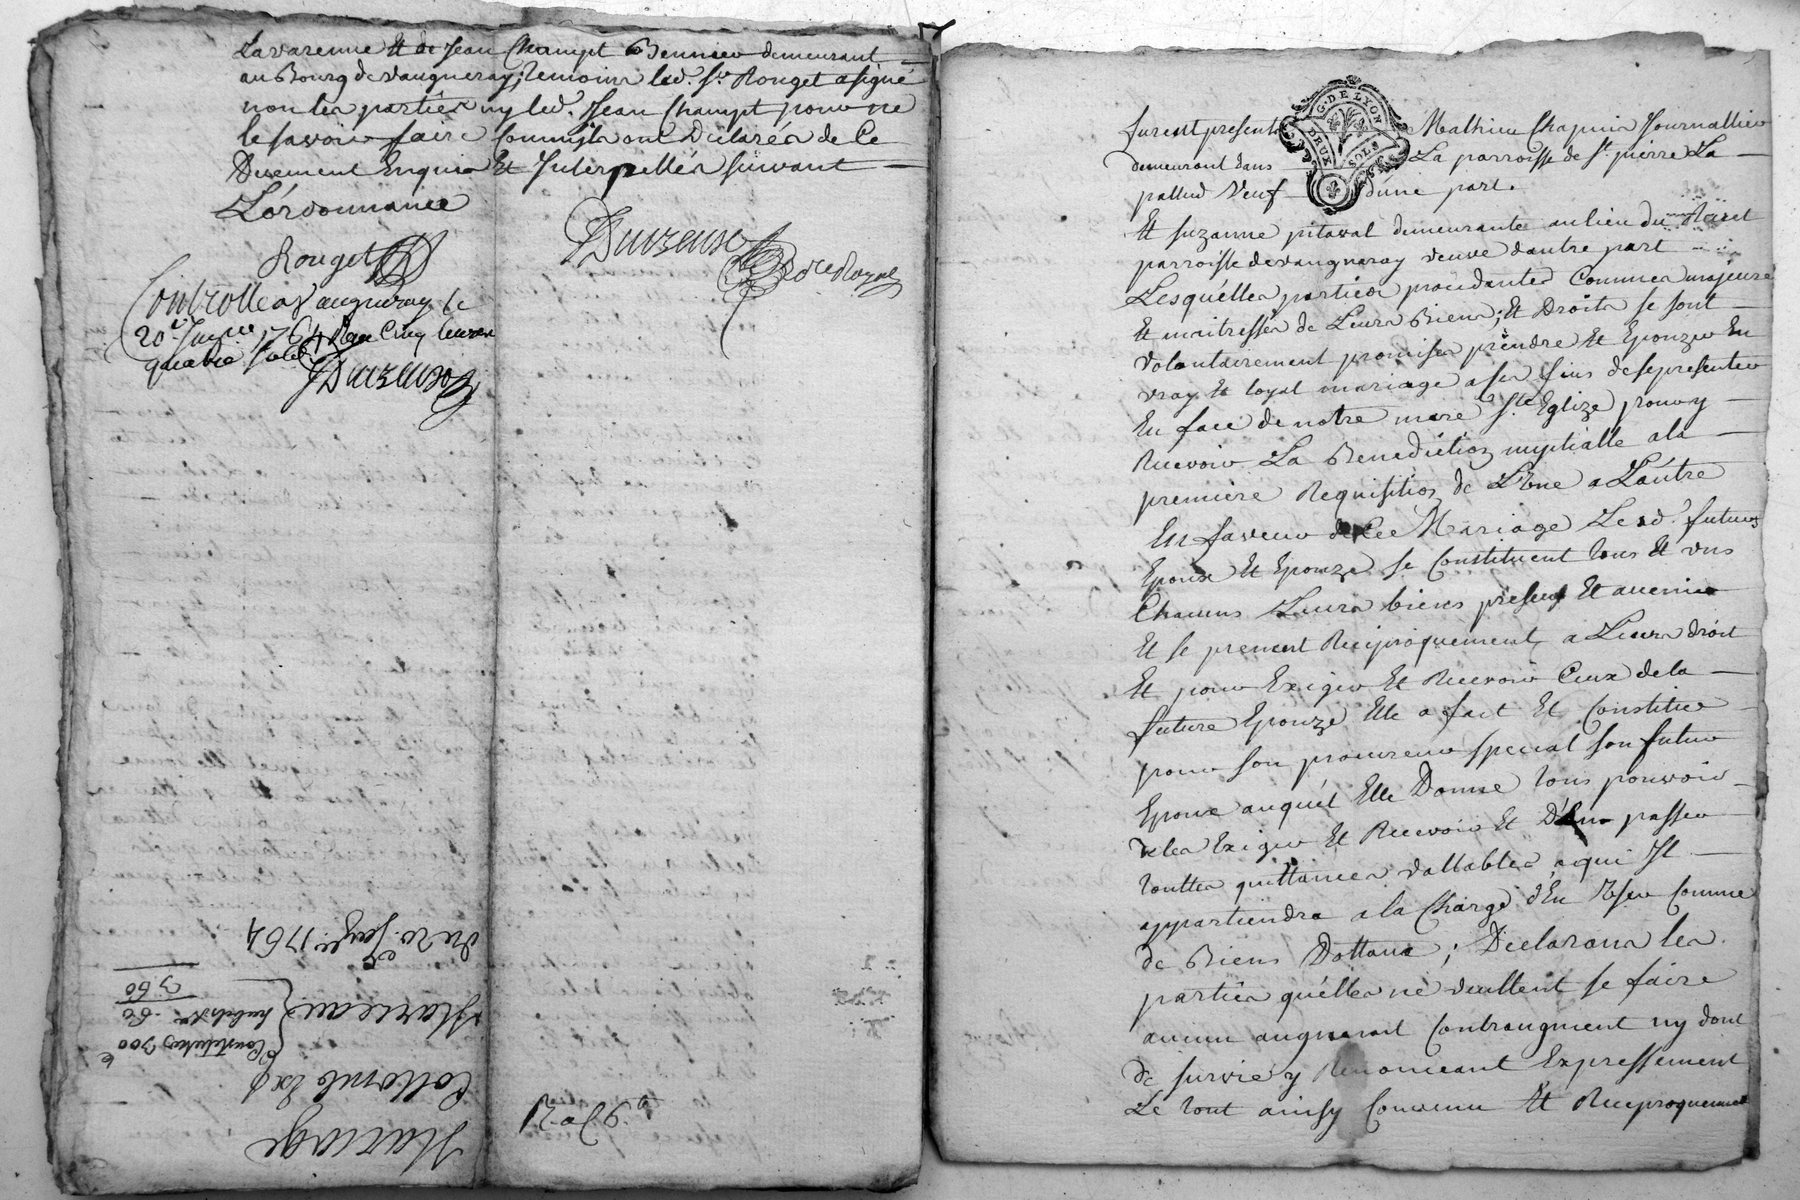 Lavarenne Et de Jean Champt Bennier demeurant
au Bourg de vaugneray, temoins led. Sr. Rouget a signé
non les parties ny led. Jean Champt pour ne
le savoir faire comm'ils ont Déclarés de Ce
Duement Enquis Et Interpellés suivant
L'ordonnance
Rouget
Duvzeuso
No.re Royal
Controllé a Vaugneray le
20e. Janv.er 1764 Reçu Cinq livres
quatre sols
Duvzeuso
du 20. Janv.er 1764
360
Marreau
habits &a. 60
Constitution 300
Collomb Ex
Mariage
G. DE LYON
DEUX SOLS
furent presents Mathieu Chapuis Journallier
demeurant dans La parroisse de St. pierre La
pallud Veuf d'une part.
Et suzanne pitaval demeurante au lieu du Recret
parroisse de vaugneray veuve d'autre part
Lesquelles parties procedantes Commes majeure
Et maitresses de Leurs Biens, Et Droits se sont
volontairement promises prendre Et Epouzer En
vray Et loyal mariage a ses fins de se presenter
En face de notre mere Ste. Eglize pour y
Recevoir La Benediction nuptialle a la
premiere Requisition de L'Une a L'autre
En faveur de Ce Mariage Lesd. futurs
Epoux Et Epouze se Constituent tous Et uns
Chacuns Leurs biens presents Et avenir
Et se prenent Reciproquement a Leurs droit
Et pour Exiger Et Recevoir Ceux de la
future Epouze Elle a fait Et Constitué
pour son procureur special son futur
Epoux auquel Elle Donne tous pouvoir
de les Exiger Et Recevoir Et D'En passer
touttes quittances vallables, a qui Il
appartiendra a la Charge d'En User Comme
de Biens Dottaux; Declarans les
parties qu'elles ne veullent se faire
aucun augment Contraugment ny dont
de survie y Renonceant Expressement
Le tout ainsy Convenu Et Reciproquement